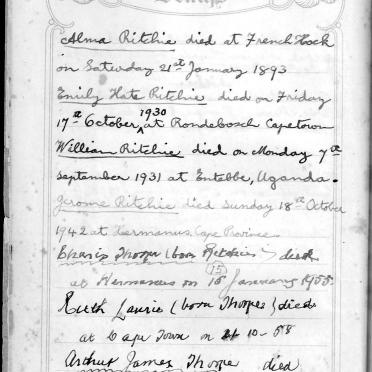 Deaths
Alma Ritchie died at French Hoek
on Saturday 21st January 1893
Emily Kate Ritchie died on Friday
17th October, 1930 at Rondebosch Capetown
William Ritchie died on Monday 7th
September 1931 at Entebbe, Uganda.
Jerome Ritchie died Sunday 18th October
1942 at Hermanus, Cape Province
Thorpe (born Ritchie) died
at Hermanus on 15 (15) January 1955.
Ruth Laurie (born Thorpe) died
at Cape Town on 21-10-58
Arthur James Thorpe died